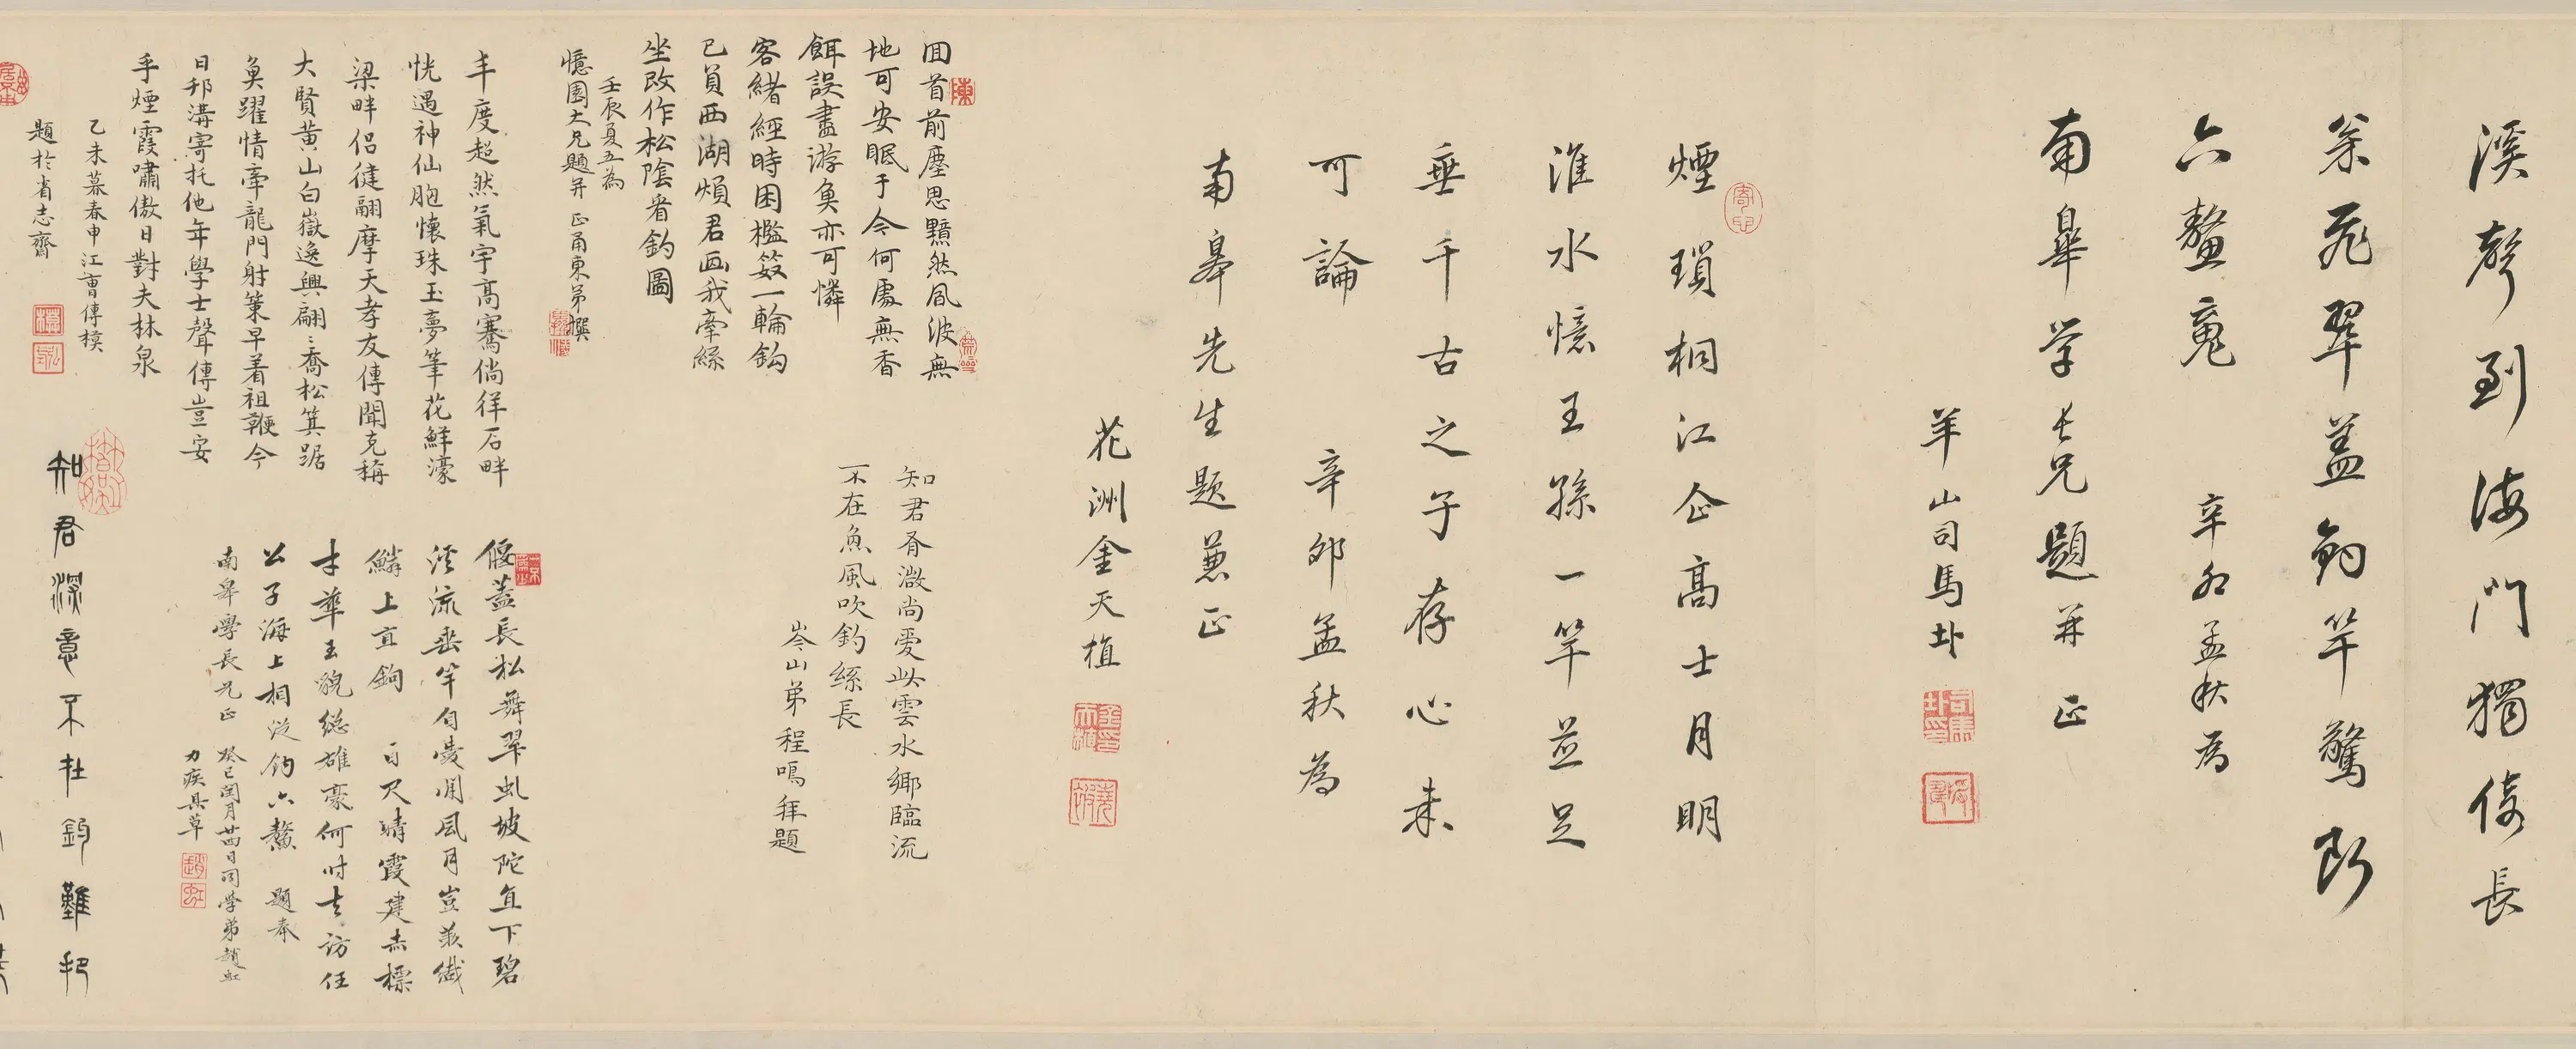 溪聲到海門獨倚長
翁飛翠蓋釣竿驚斷
六鼇魂 辛卯孟秋為
南皐学長兄題并正
羊山司馬
煙瑣桐江企高士月明
淮水憶王孫一竿並足
垂千古之子存心未
可論 辛卯孟秋為
南皋先生題兼正
花洲金天植
回首前塵思黯然風波無
地可安眠于今何處無香
餌誤盡游魚亦可憐
客緒經時困檻笯一輪鈎
已負西湖煩君画我牽絲
坐改作松陰看釣圖
壬辰夏五為
憶園大兄題并正甬東弟撰
知君脊激尚愛此雲水鄉臨流
不在魚風吹釣絲長
岑山弟程鳴拜題
丰度超然氣宇高騫倘徉石畔
恍遇神仙胞懷珠玉夢筆花鮮濠
梁畔侶健翮摩天孝友傳聞克稱
大賢黃山白嶽逸興翩〻喬松箕踞
魚躍情牽龍門射策早着祖鞭今
日邗溝寄托他年學士聲傳豈安
乎煙霞嘯傲日對夫林泉
乙未暮春申江曹傳模
題於省志齋
偃蓋長松舞翠虬坡陀直下碧
溪流垂竿自愛閒風月豈羨纖
鱗上直鉤 百尺晴霞建赤標
才華玉貌總雄豪何時去訪任
公子海上相從釣六鰲 題奉
南皋學長兄正 癸巳閏月廿四日同学弟趙虹
力疾具草
知君深意不在釣難把